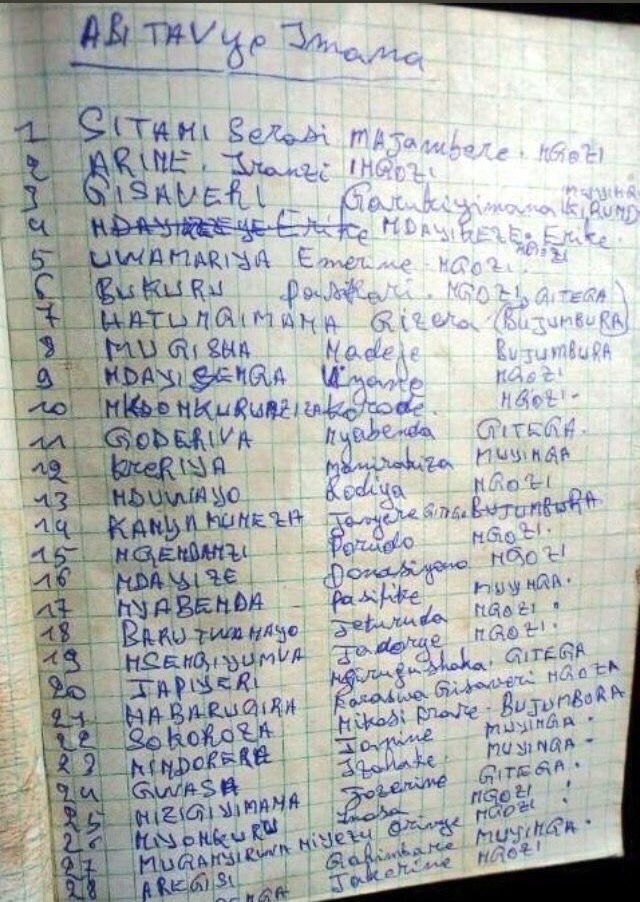 ABITAVye Imana
1 SITAMI Serosi MAJambere. NGOZI
2 ARINE. Iranzi INGOZI
3 GISAVERI Garukiyimana MUYINGA KIRUND
4 NDAYIZEYE Erike NDAYIKEZE. Erike. NGOZI
5 UWAMARIYA Emerine. NGOZI.
6 BUKURU Pasikari. NGOZI, GITEGA
7 HATUNGIMANA Gizera (BUJUMBURA)
8 MUGISHA Nadeje BUJUMBURA
9 NDAYISENGA NGOZI
10 NKDONKURUNZIZA Korode. NGOZI.
11 GODERIVA Nyabenda GITEGA.
12 KreRIYA Manirakiza MUYINGA
13 NDUWAYO Rodiya NGOZI
14 KANYAMUNEZA Janyere GITEGA BUJUMBURA
15 NGENDANZI Porudo NGOZI.
16 NDAYIZE Donasiyano NGOZI
17 NYABENDA Pasifike MUYINGA.
18 BARUTWANAYO Jeturuda NGOZI.
19 NSENGIYUMVA Jadorye NGOZI.
20 JAPIYERI Ngirugushaka. GITEGA
21 HABARUGIRA Karaswa Gisaveri NGOZA
22 SOKOROZA Nikosi BUJUMBORA
23 NINDORERE Jannine MUYINGA.
24 GWASA Izahake. MUYINGA-
25 NIZIGIYIMANA Jozerine GITEGA.
26 NIYONKURU Inosa NGOZI
27 MUGANYIRUWA NIYEZU NGOZI!
28 AREGISI Gahimbare MUYINGA.
Jakerine NGOZI